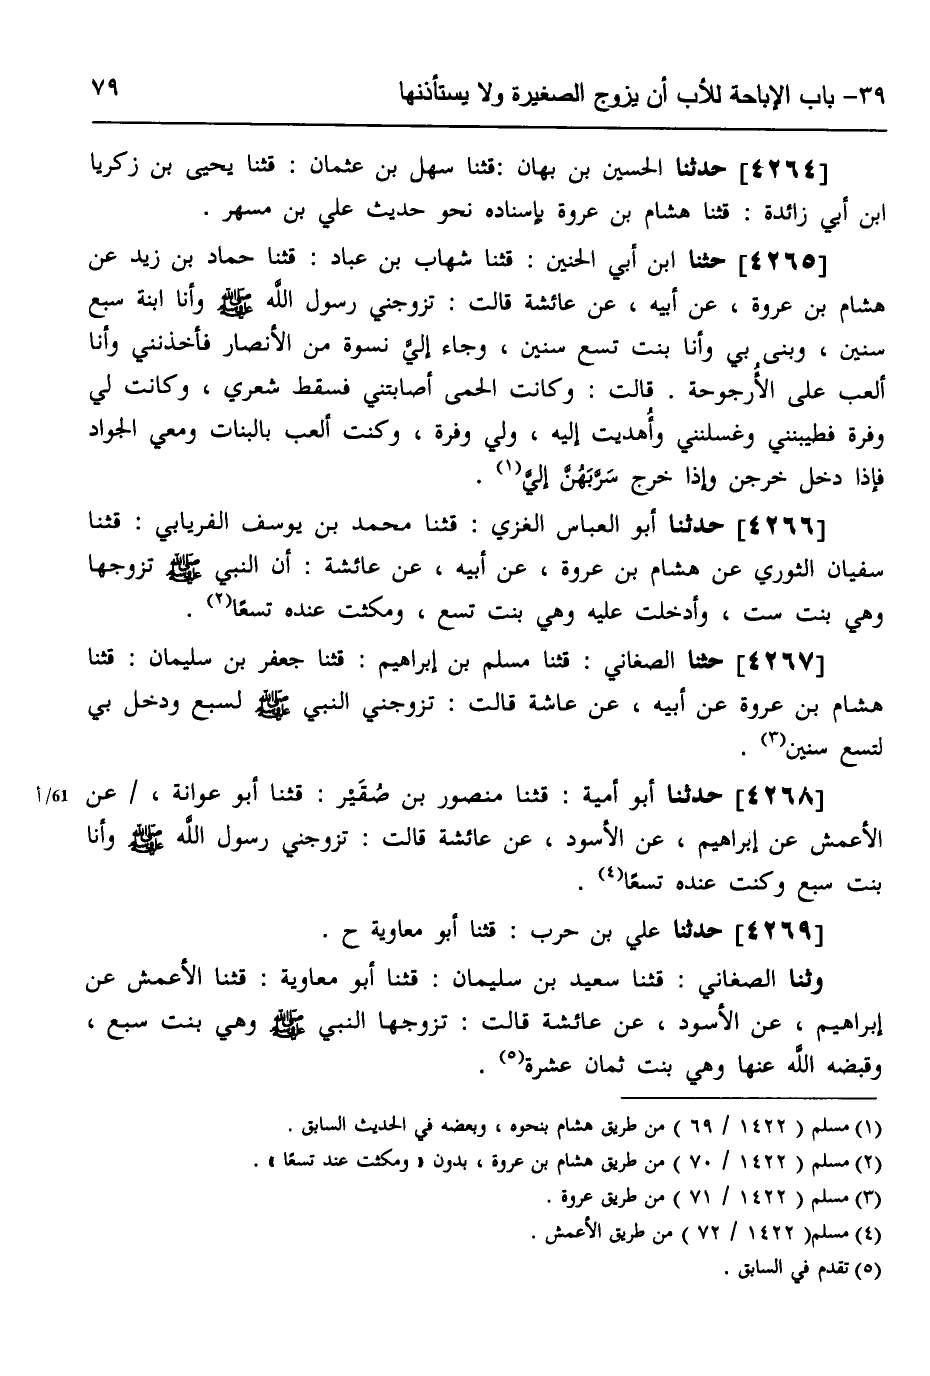 ٣٩- باب الإباحة للأب أن يزوج الصغيرة ولا يستأذنها
٧٩
[٤٢٦٤] حدثنا الحسين بن بهان :قثنا سهل بن عثمان : قثنا يحيى بن زكريا
ابن أبي زائدة : قثنا هشام بن عروة بإسناده نحو حديث علي بن مسهر .
[٤٢٦٥] حثنا ابن أبي الحنين : قثنا شهاب بن عباد : قثنا حماد بن زيد عن
هشام بن عروة ، عن أبيه ، عن عائشة قالت : تزوجني رسول اللَّه ﷺ وأنا ابنة سبع
سنين ، وبنى بي وأنا بنت تسع سنين ، وجاء إليَّ نسوة من الأنصار فأخذنني وأنا
ألعب على الأُرجوحة . قالت : وكانت الحمى أصابتني فسقط شعري ، وكانت لي
وفرة فطيبنني وغسلنني وأُهديت إليه ، ولي وفرة ، وكنت ألعب بالبنات ومعي الجواد
فإذا دخل خرجن وإذا خرج سَرَّبَهُنَّ إليَّ(١) .
[٤٢٦٦] حدثنا أبو العباس الغزي : قثنا محمد بن يوسف الفريابي : قثنا
سفيان الثوري عن هشام بن عروة ، عن أبيه ، عن عائشة : أن النبي ﷺ تزوجها
وهي بنت ست ، وأدخلت عليه وهي بنت تسع ، ومكثت عنده تسعًا(٢) .
[٤٢٦٧] حثنا الصغاني : قثنا مسلم بن إبراهيم : قثنا جعفر بن سليمان : قثنا
هشام بن عروة عن أبيه ، عن عاشة قالت : تزوجني النبي ﷺ لسبع ودخل بي
لتسع سنين(٣) .
[٤٢٦٨] حدثنا أبو أمية : قثنا منصور بن صُقَيْر : قثنا أبو عوانة ، / عن
61/أ
الأعمش عن إبراهيم ، عن الأسود ، عن عائشة قالت : تزوجني رسول اللَّه ﷺ وأنا
بنت سبع وكنت عنده تسعًا(٤) .
[٤٢٦٩] حدثنا علي بن حرب : قثنا أبو معاوية ح .
وثنا الصغاني : قثنا سعيد بن سليمان : قثنا أبو معاوية : قثنا الأعمش عن
إبراهيم ، عن الأسود ، عن عائشة قالت : تزوجها النبي ﷺ وهي بنت سبع ،
وقبضه اللَّه عنها وهي بنت ثمان عشرة(٥) .
(١) مسلم ( ١٤٢٢ / ٦٩ ) من طريق هشام بنحوه ، وبعضه في الحديث السابق .
(٢) مسلم ( ١٤٢٢ / ٧٠ ) من طريق هشام بن عروة ، بدون « ومكثت عند تسعًا » .
(٣) مسلم ( ١٤٢٢ / ٧١ ) من طريق عروة .
(٤) مسلم( ١٤٢٢ / ٧٢ ) من طريق الأعمش .
(٥) تقدم في السابق .